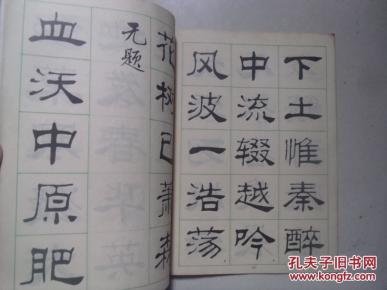 下土惟秦醉
中流辍越吟
风波一浩荡
花树已萧森
无题
血沃中原肥
孔夫子旧书网